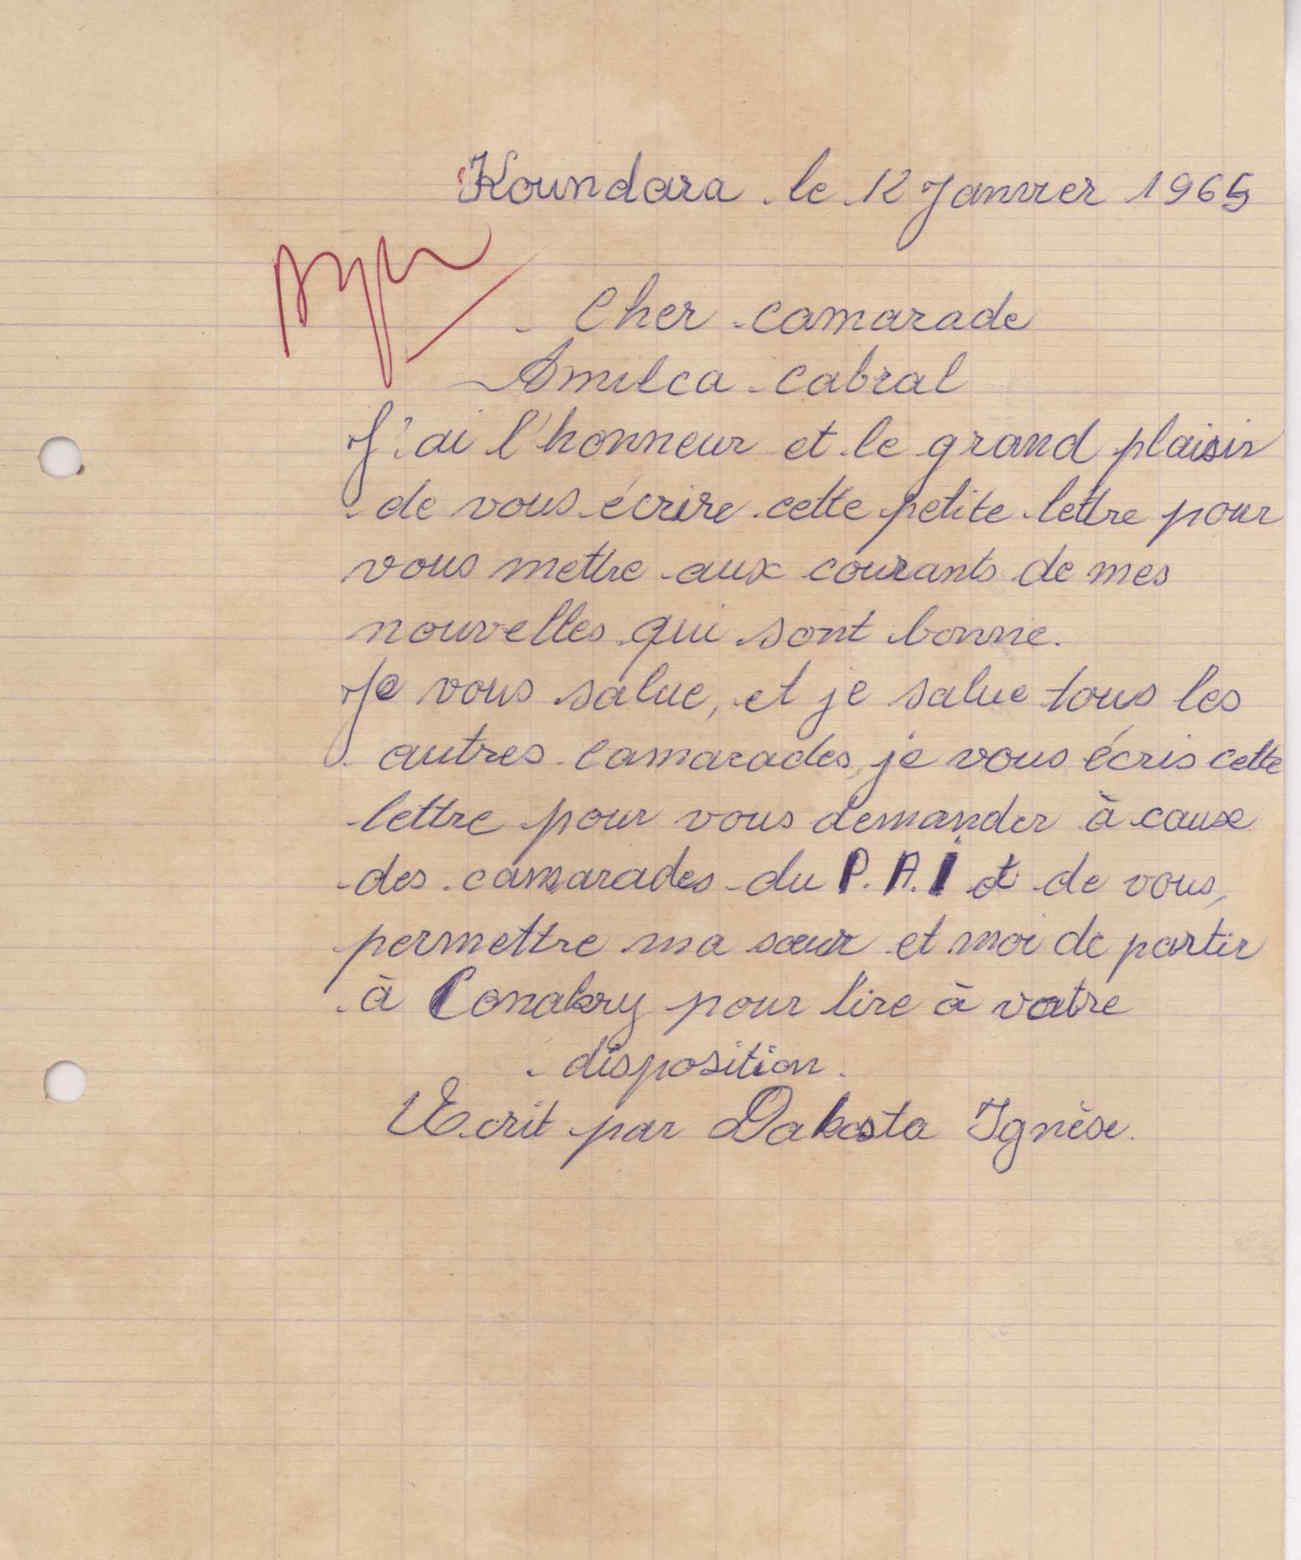 Koundara le 12 Janvier 1965
Cher camarade
Amilca Cabral
J'ai l'honneur et le grand plaisir
de vous écrire cette petite lettre pour
vous mettre aux courants de mes
nouvelles qui sont bonne.
Je vous salue, et je salue tous les
autres camarades, je vous écris cette
lettre pour vous demander à cause
des camarades du P.A.I et de vous,
permettre ma sœur et moi de partir
à Conakry pour lire à votre
disposition.
Ecrit par Dakosta Ignèse.